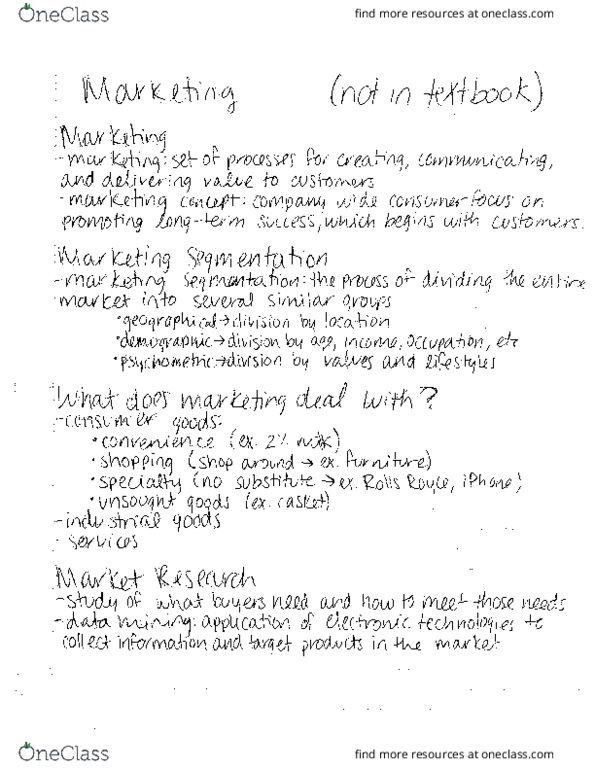 OneClass
find more resources at oneclass.com
Marketing (not in textbook)
Marketing
-marketing: set of processes for creating, communicating,
and delivering value to customers
-marketing concept: company wide consumer focus on
promoting long-term success, which begins with customers.
Marketing Segmentation
-marketing segmentation: the process of dividing the entire
market into several similar groups
•geographical→division by location
•demographic→division by age, income, occupation, etc
•psychometric→division by values and lifestyles
What does marketing deal with?
-consumer goods:
•convenience (ex. 2% milk)
•shopping (shop around → ex. furniture)
•specialty (no substitute → ex. Rolls Royce, iPhone)
•unsought goods (ex. casket)
-industrial goods
-services
Market Research
-study of what buyers need and how to meet those needs
-data mining: application of electronic technologies to
collect information and target products in the market
OneClass
find more resources at oneclass.com